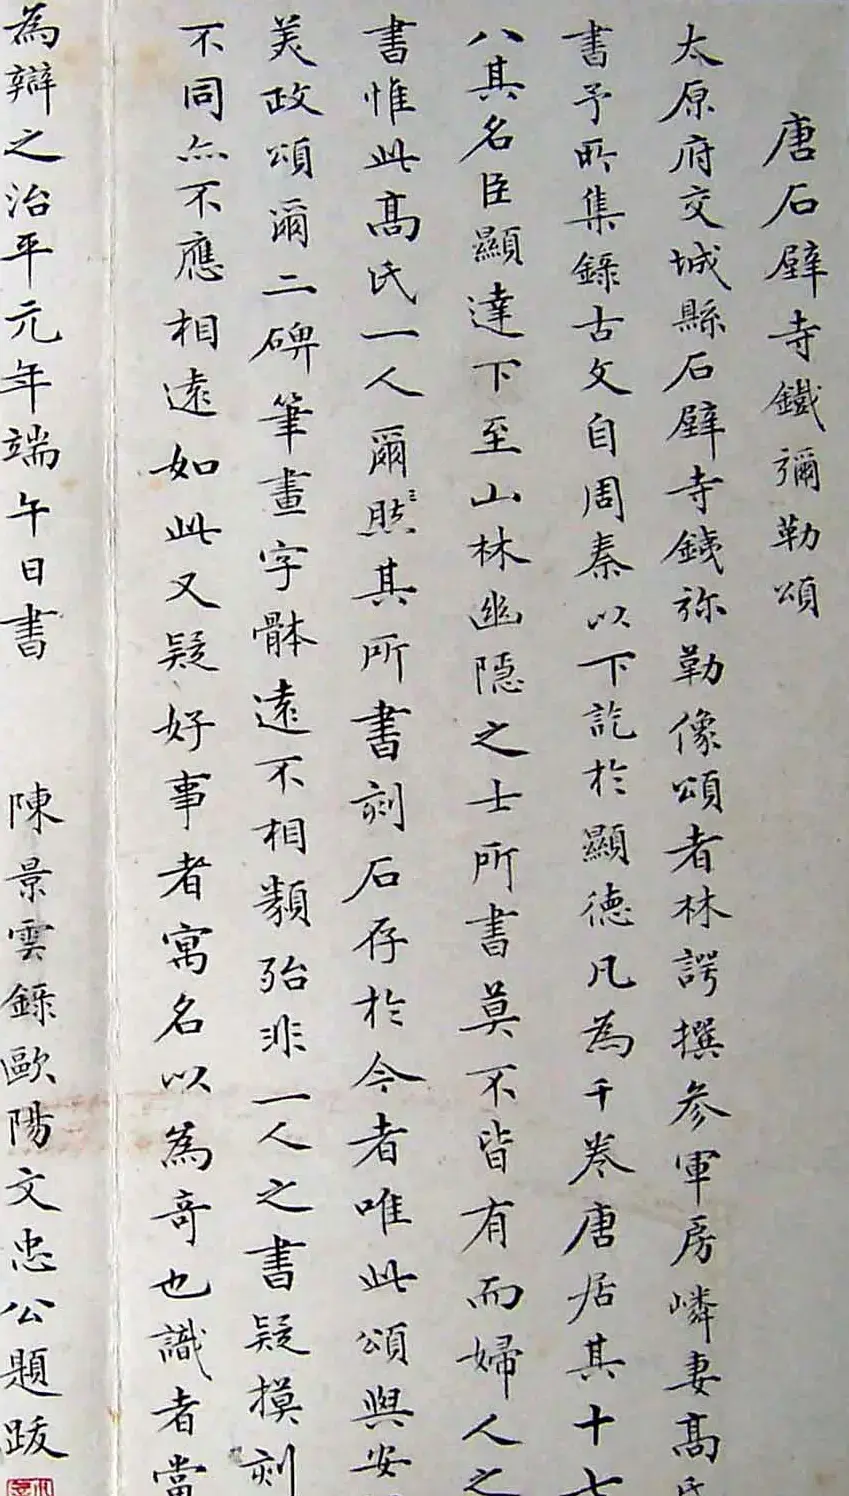 唐石壁寺鐵彌勒頌
太原府交城縣石壁寺鐵弥勒像頌者林諤撰参軍房嶙妻髙氏
書予所集錄古文自周秦以下訖於顯德凡為千卷唐居其十七
八其名臣顯達下至山林幽隠之士所書莫不皆有而婦人之
書惟此髙氏一人爾然其所書刻石存於今者唯此頌與安
美政頌爾二碑筆畫字體遠不相類殆非一人之書疑摸刻
不同亦不應相遠如此又疑好事者寓名以為奇也識者當
為辯之治平元年端午日書 陳景雲錄歐陽文忠公題跋